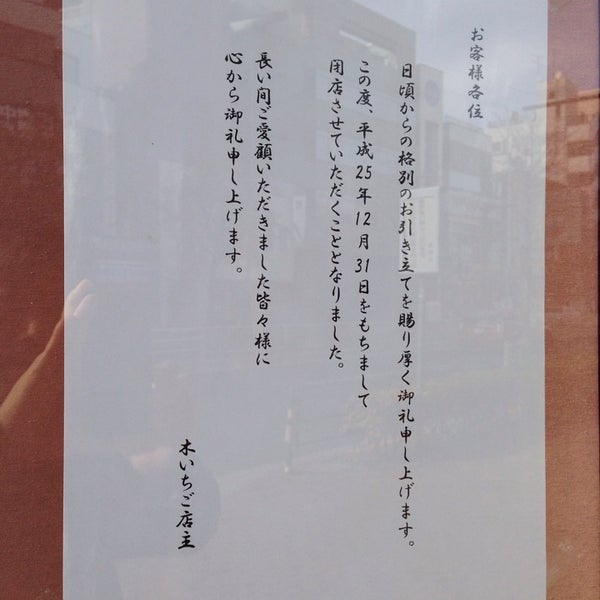 お客様各位
日頃からの格別のお引き立てを賜り厚く御礼申し上げます。
この度、平成25年12月31日をもちまして
閉店させていただくこととなりました。
長い間ご愛顧いただきました皆々様に
心から御礼申し上げます。
木いちご店主